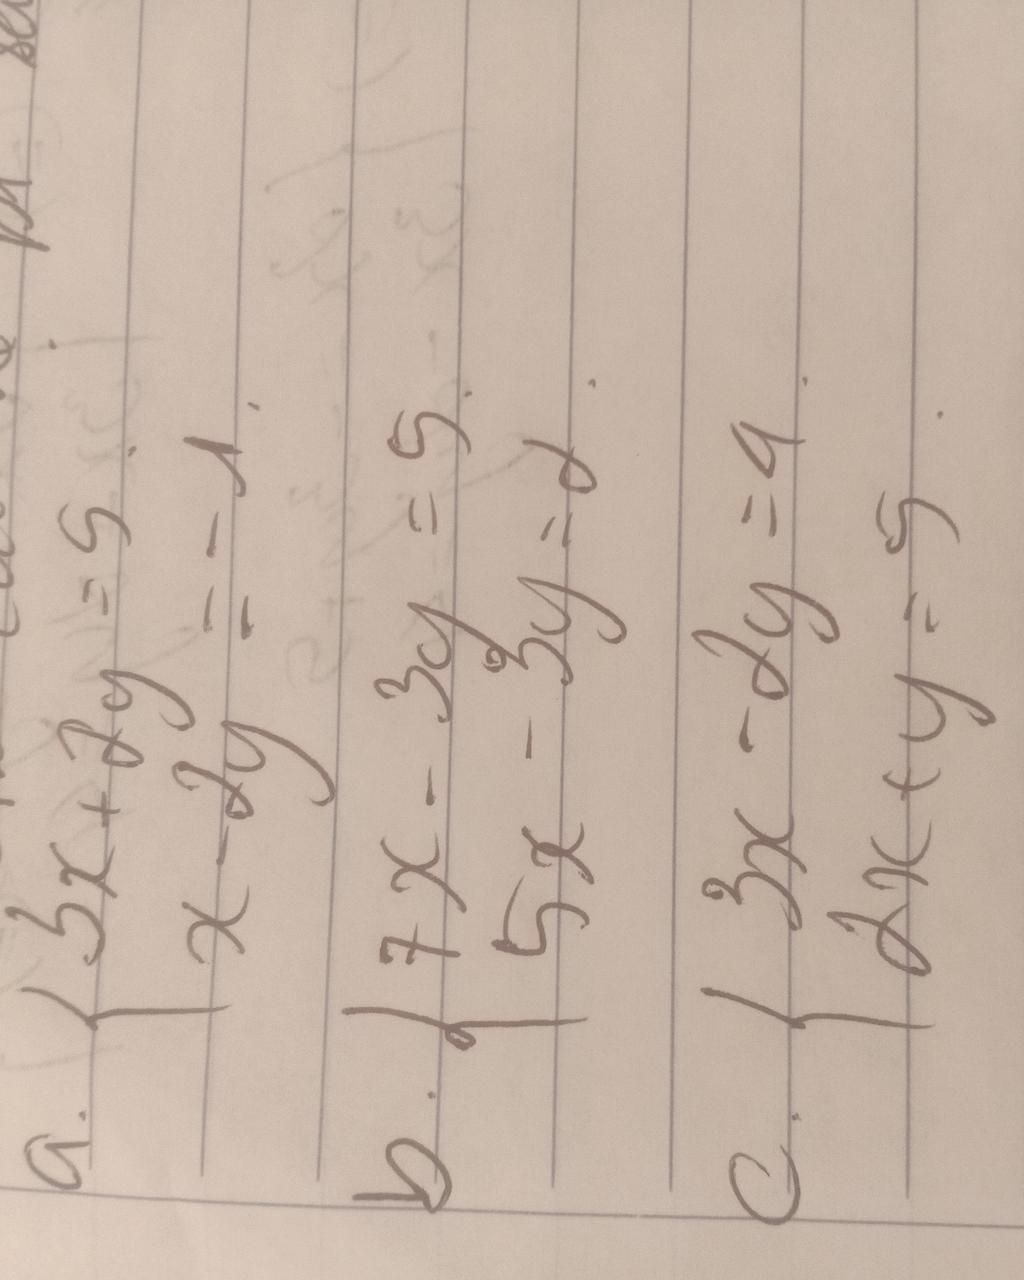 a. { 3x + 2y = 5.
x - 2y = - 1.
b. { 7x - 3y = 5.
5x - 3y = 2.
c. { 3x - 2y = 4.
2x + y = 5.